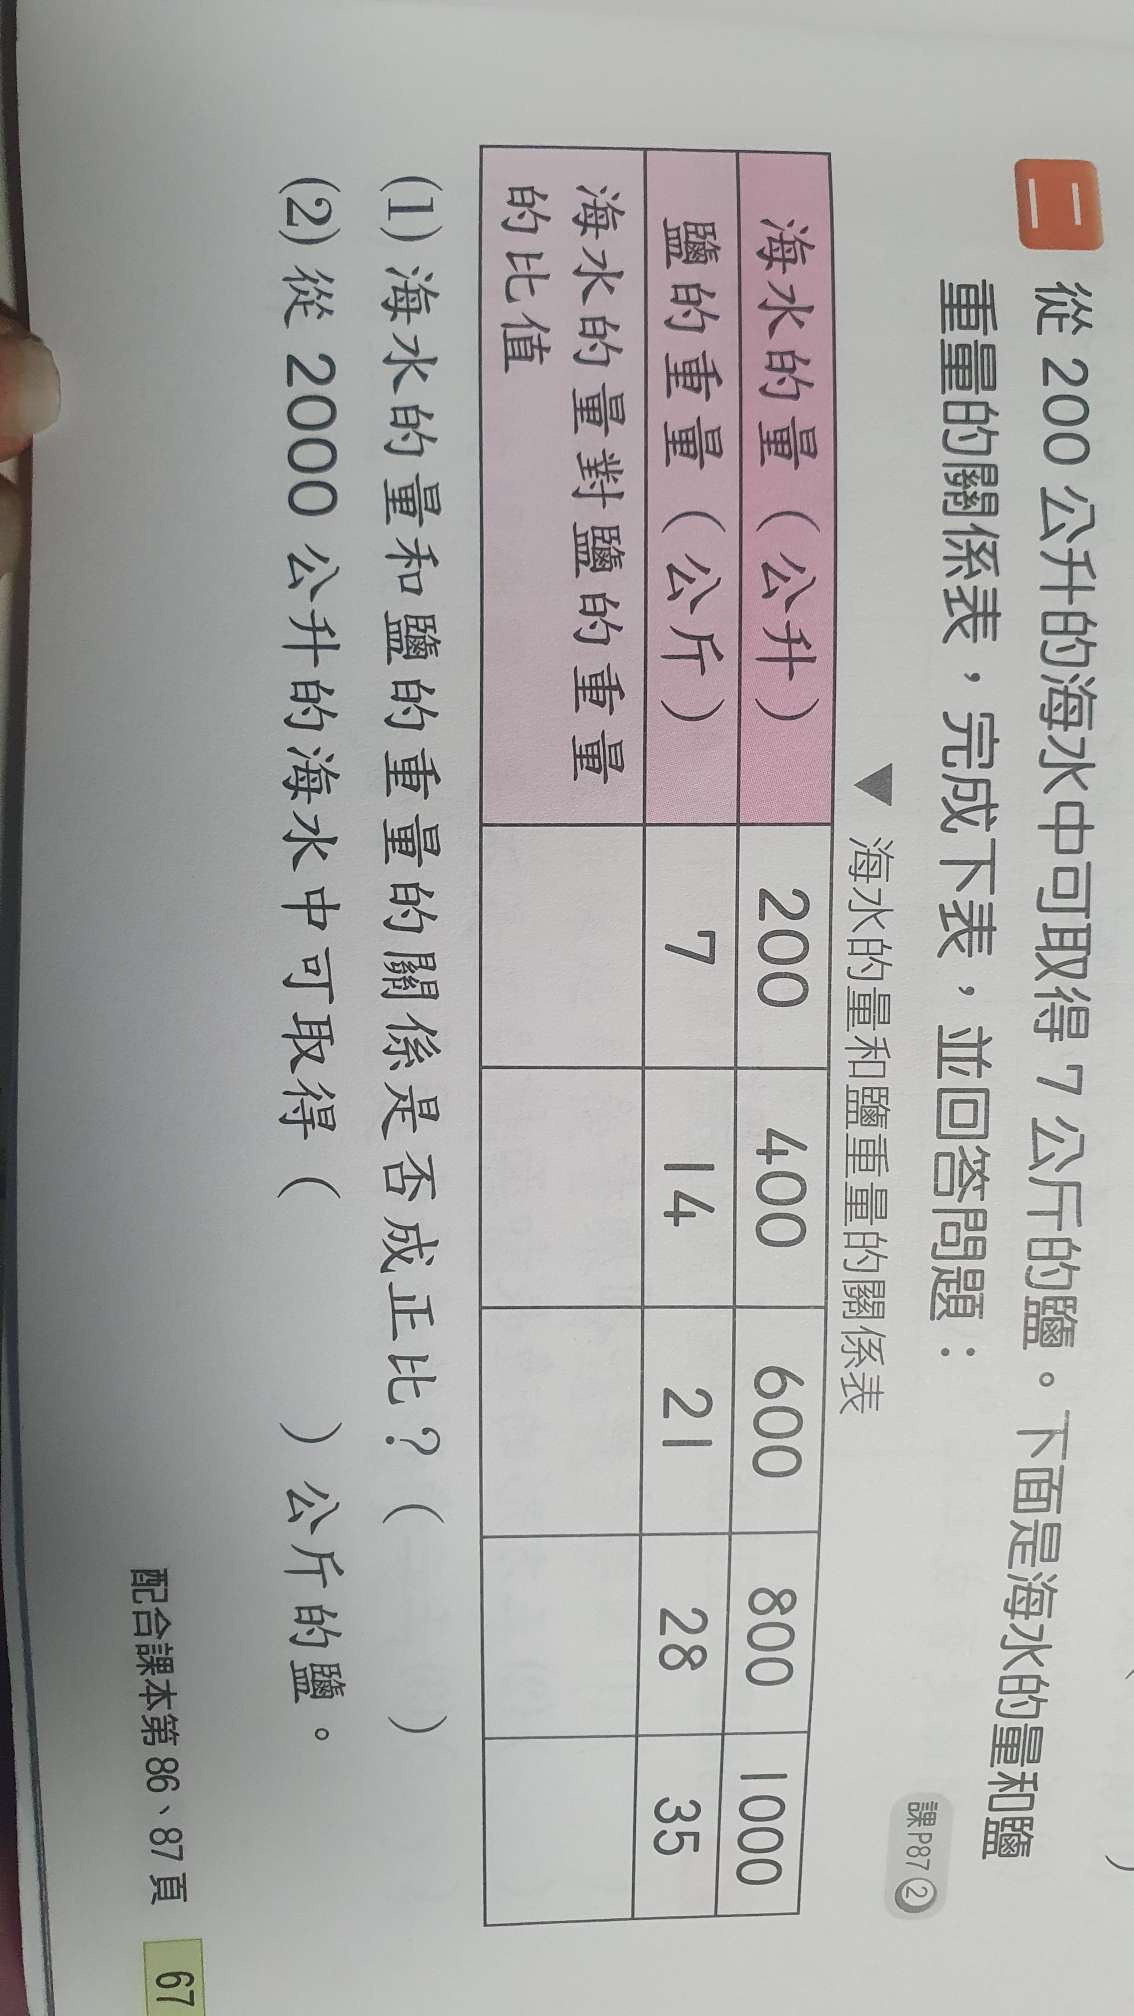 二 從 200 公升的海水中可取得 7 公斤的鹽。下面是海水的量和鹽
重量的關係表，完成下表，並回答問題：
課P87②
▼ 海水的量和鹽重量的關係表
海水的量（公升） 200 400 600 800 1000
鹽的重量（公斤） 7 14 21 28 35
海水的量對鹽的重量
的比值
(1) 海水的量和鹽的重量的關係是否成正比？（ ）
(2) 從 2000 公升的海水中可取得（ ）公斤的鹽。
配合課本第 86、87 頁 67